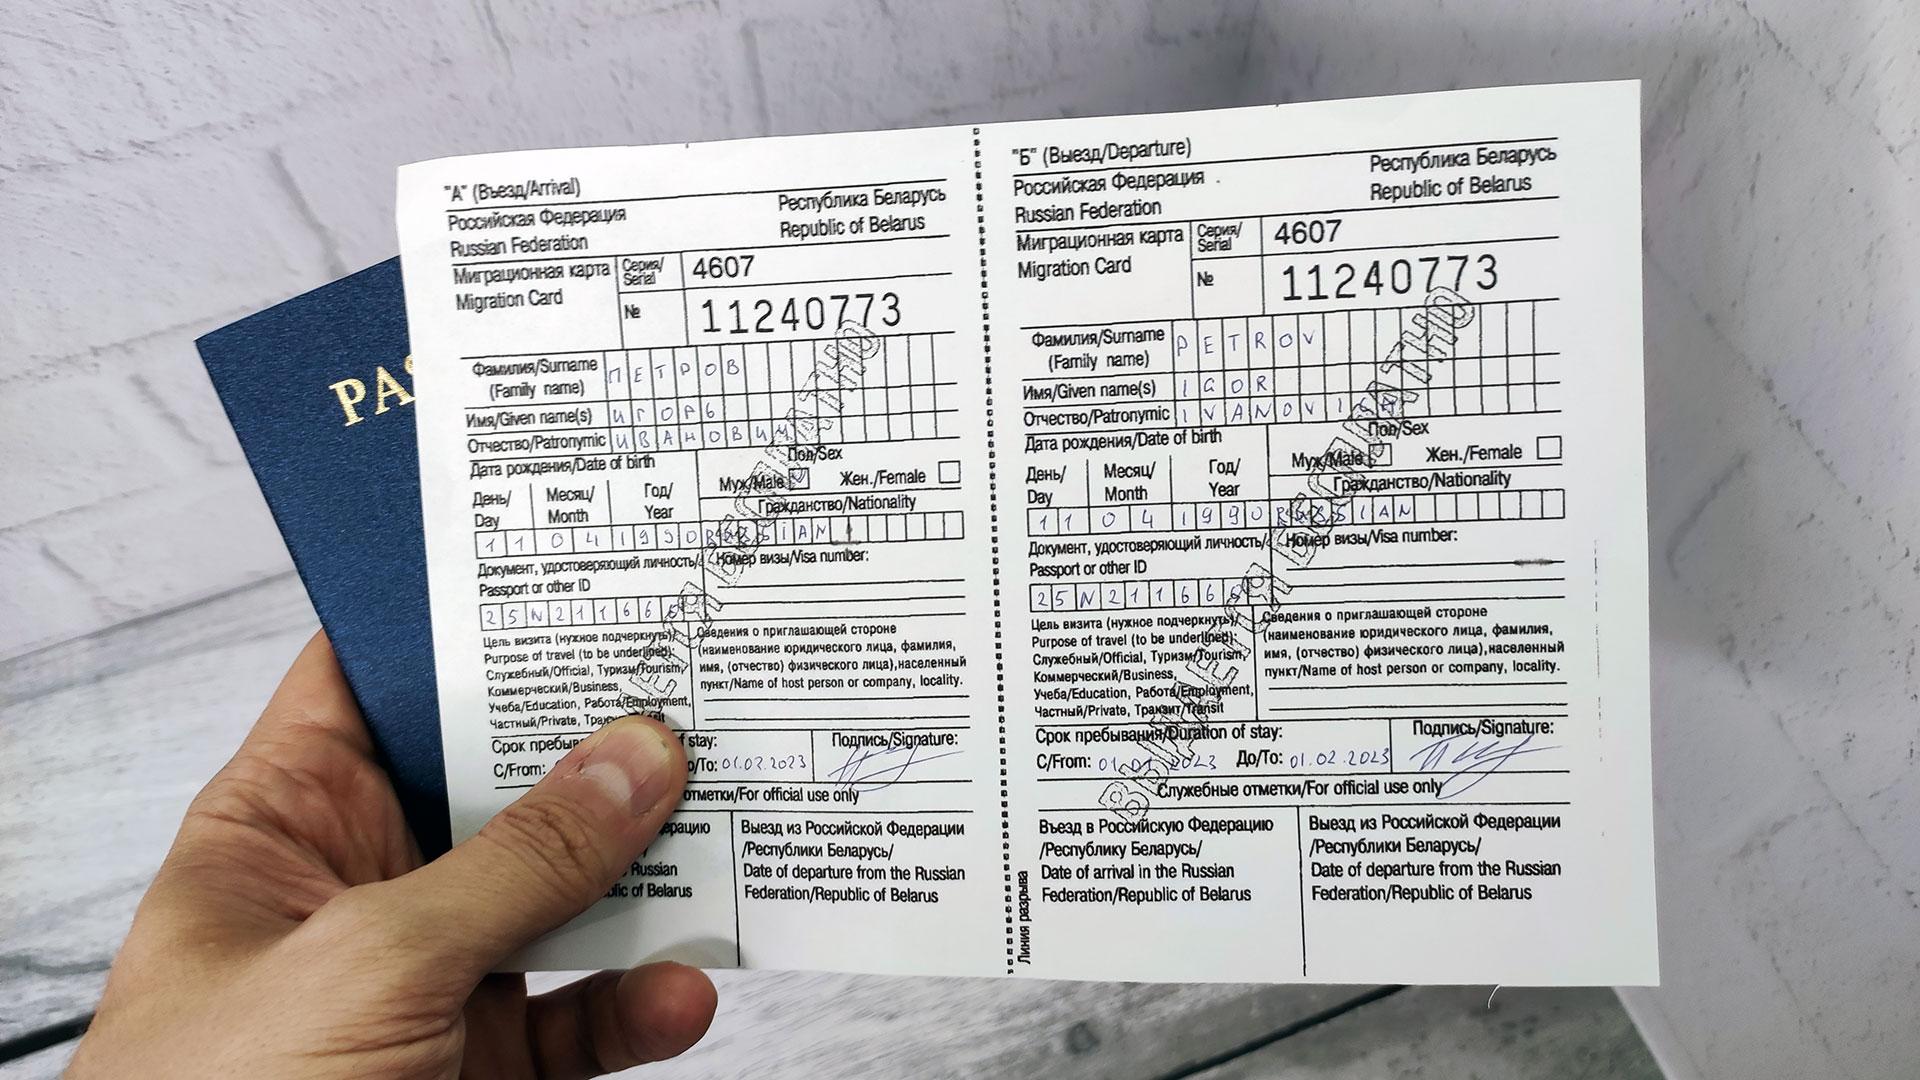 PAS
"А" (Въезд/Arrival)
Российская Федерация
Russian Federation
Республика Беларусь
Republic of Belarus
Миграционная карта
Migration Card
Серия/
Serial
4607
№
11240773
Фамилия/Surname
(Family name)
ПЕТРОВ
Имя/Given name(s)
ИГОРЬ
Отчество/Patronymic
ИВАНОВИЧ
Дата рождения/Date of birth
Пол/Sex
Муж/Male
Жен./Female
День/
Day
Месяц/
Month
Год/
Year
Гражданство/Nationality
11 04 1990 RUSSIAN
Документ, удостоверяющий личность/
Passport or other ID
Номер визы/Visa number:
25N211666
Цель визита (нужное подчеркнуть)/
Purpose of travel (to be underlined):
Служебный/Official, Туризм/Tourism,
Коммерческий/Business,
Учеба/Education, Работа/Employment,
Частный/Private, Транзит/Transit
Сведения о приглашающей стороне
(наименование юридического лица, фамилия,
имя, (отчество) физического лица),населенный
пункт/Name of host person or company, locality.
Срок пребыва
of stay:
С/From:
о/To: 01.02.2023
Подпись/Signature:
отметки/For official use only
ерацию
Russian
lic of Belarus
Выезд из Российской Федерации
/Республики Беларусь/
Date of departure from the Russian
Federation/Republic of Belarus
"Б" (Выезд/Departure)
Российская Федерация
Russian Federation
Республика Беларусь
Republic of Belarus
Миграционная карта
Migration Card
Серия/
Serial
4607
№
11240773
Фамилия/Surname
(Family name)
PETROV
Имя/Given name(s)
IGOR
Отчество/Patronymic
Дата рождения/Date of birth
Пол/Sex
Муж/Male
Жен./Female
День/
Day
Месяц/
Month
Год/
Year
Гражданство/Nationality
11 04 1990 RUSSIAN
Документ, удостоверяющий личность/
Passport or other ID
Номер визы/Visa number:
25N211666
Цель визита (нужное подчеркнуть)/
Purpose of travel (to be underlined):
Служебный/Official, Туризм/Tourism,
Коммерческий/Business,
Учеба/Education, Работа/Employment,
Частный/Private, Транзит/Transit
Сведения о приглашающей стороне
(наименование юридического лица, фамилия,
имя, (отчество) физического лица),населенный
пункт/Name of host person or company, locality.
Срок пребывания/Duration of stay:
С/From: 01.01.2023
До/To: 01.02.2023
Подпись/Signature:
Служебные отметки/For official use only
Въезд в Российскую Федерацию
/Республику Беларусь/
Date of arrival in the Russian
Federation/Republic of Belarus
Выезд из Российской Федерации
/Республики Беларусь/
Date of departure from the Russian
Federation/Republic of Belarus
Линия разрыва
БЕСПЛАТНО